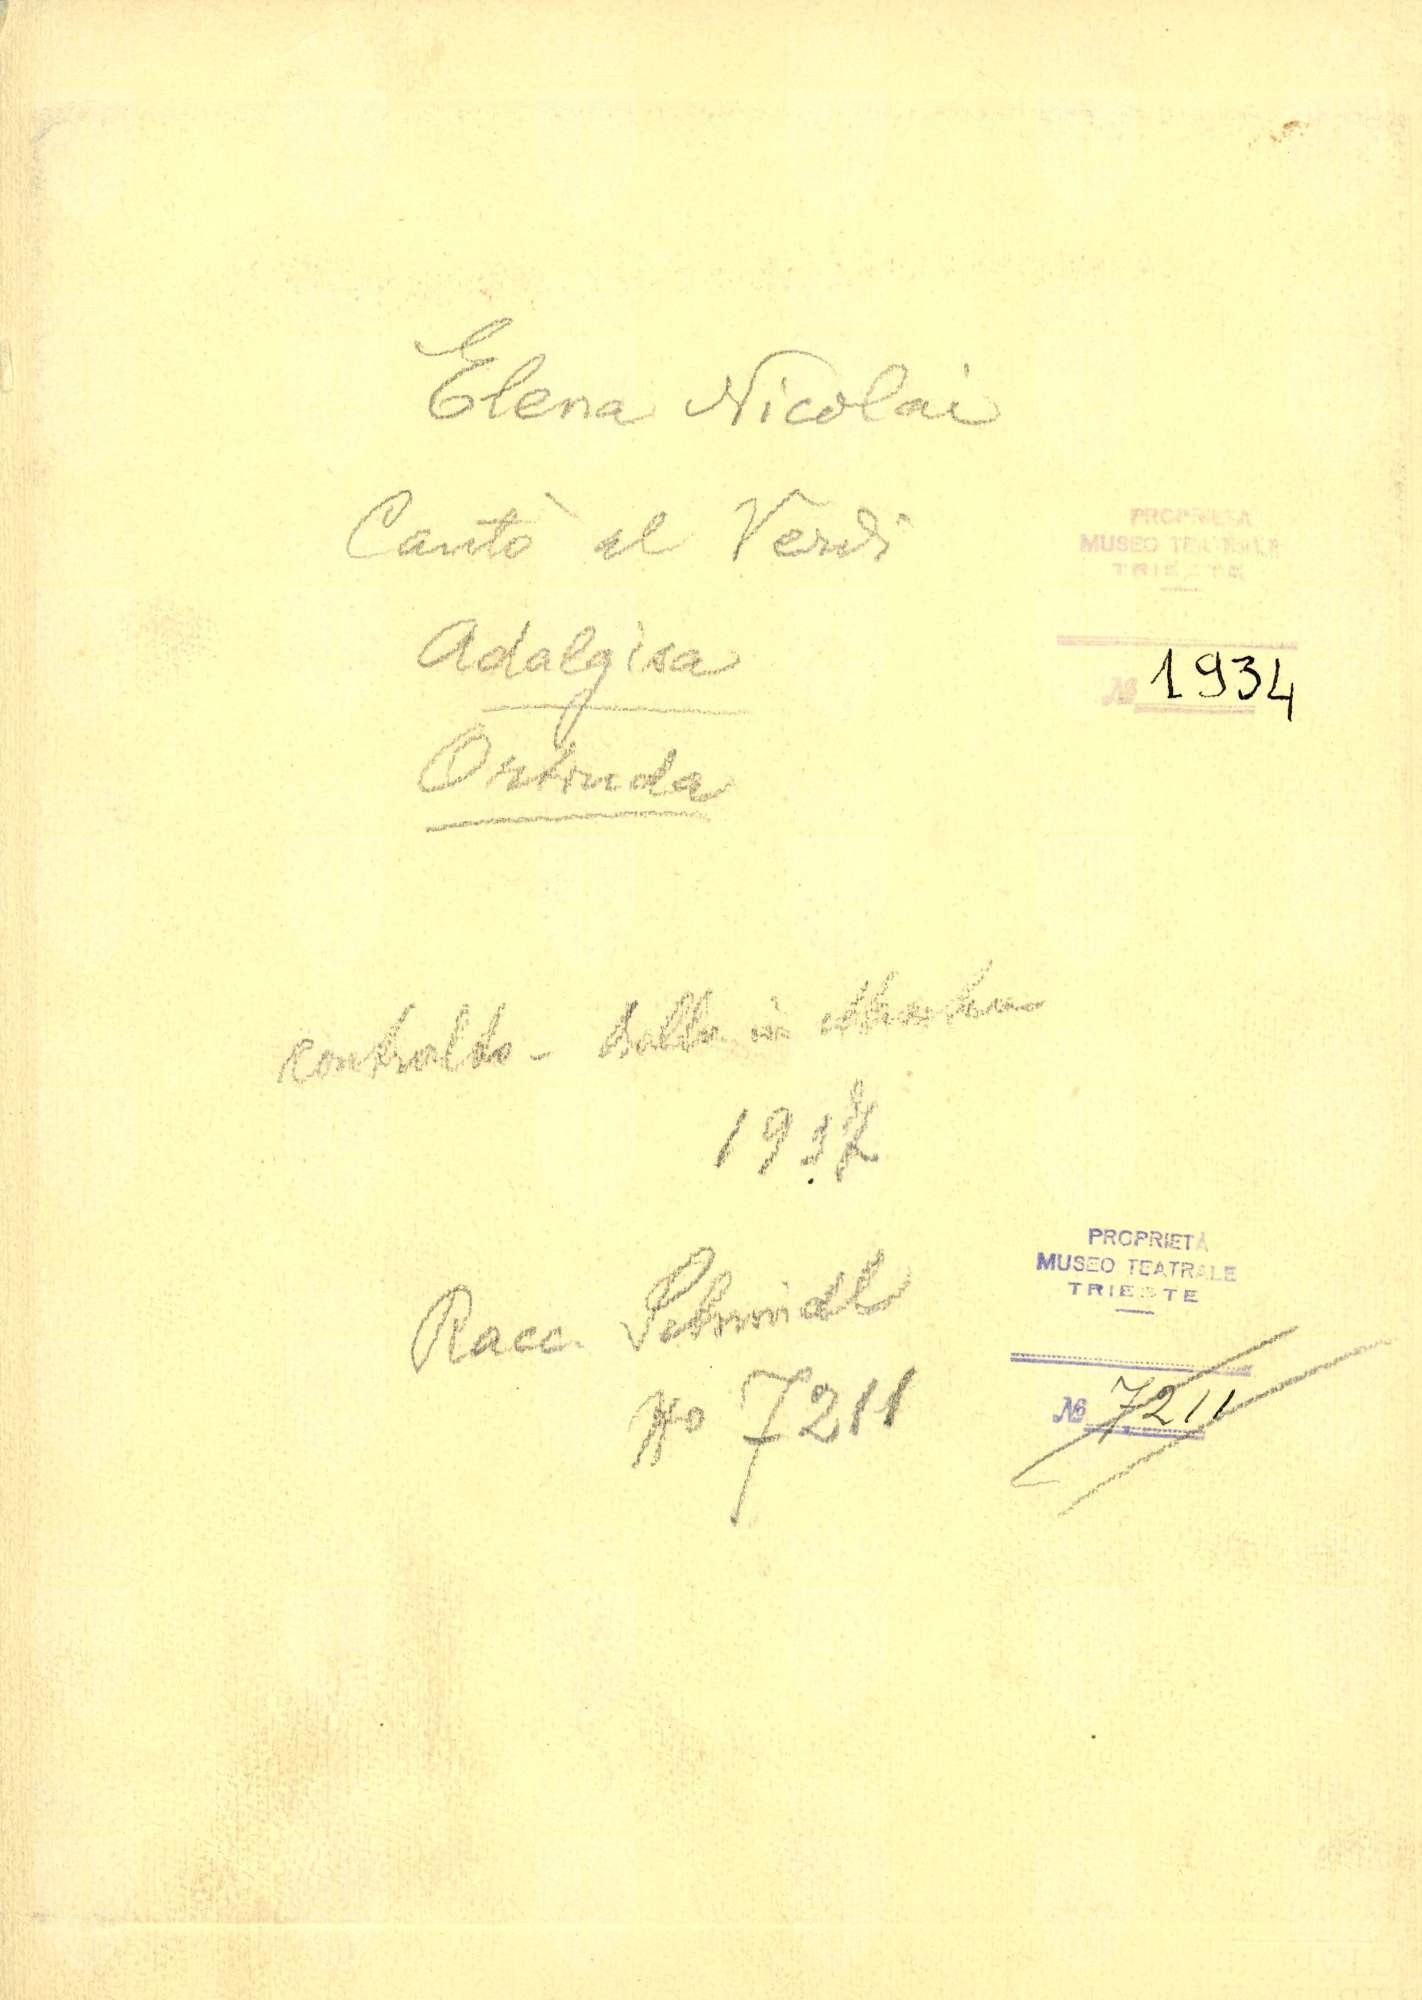 Elena Nicolai
Cantò al Verdi
Adalgisa
Ortruda
PROPRIETÀ
MUSEO TEATRALE
TRIESTE
№ 1934
contralto - in
193
Racc. Schmidl
No 7211
PROPRIETÀ
MUSEO TEATRALE
TRIESTE
№ 7211